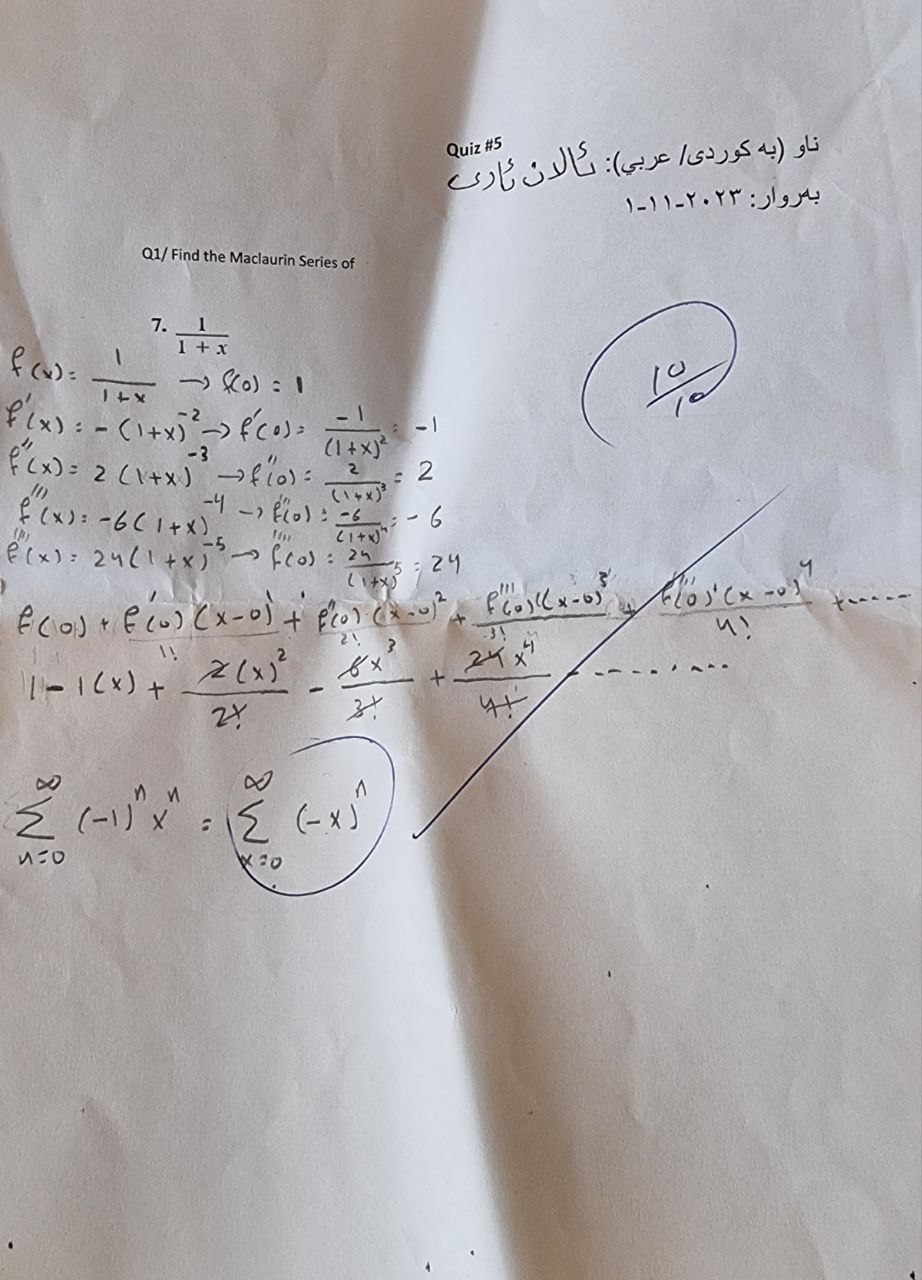 Quiz #5
ناو (به كوردى/ عربي): ئالان ئارى
بەروار: ٢٠٢٣-١١-١
Q1/ Find the Maclaurin Series of
7. 1/(1 + x)
10/10
f(x) = 1/(1+x) → f(0) = 1
f'(x) = -(1+x)^-2 → f'(0) = -1/(1+x)^2 = -1
f''(x) = 2(1+x)^-3 → f''(0) = 2/(1+x)^3 = 2
f'''(x) = -6(1+x)^-4 → f'''(0) = -6/(1+x)^4 = -6
f''''(x) = 24(1+x)^-5 → f''''(0) = 24/(1+x)^5 = 24
f(0) + f'(0)(x-0)'/1! + f''(0)·(x-0)^2/2! + f'''(0)'(x-0)^3/3! + f''''(0)'(x-0)^4/4! + .....
1 - 1(x) + 2(x)^2/2! - 6x^3/3! + 24x^4/4! - ........
∞∑n=0 (-1)^n x^n = ∞∑x=0 (-x)^n